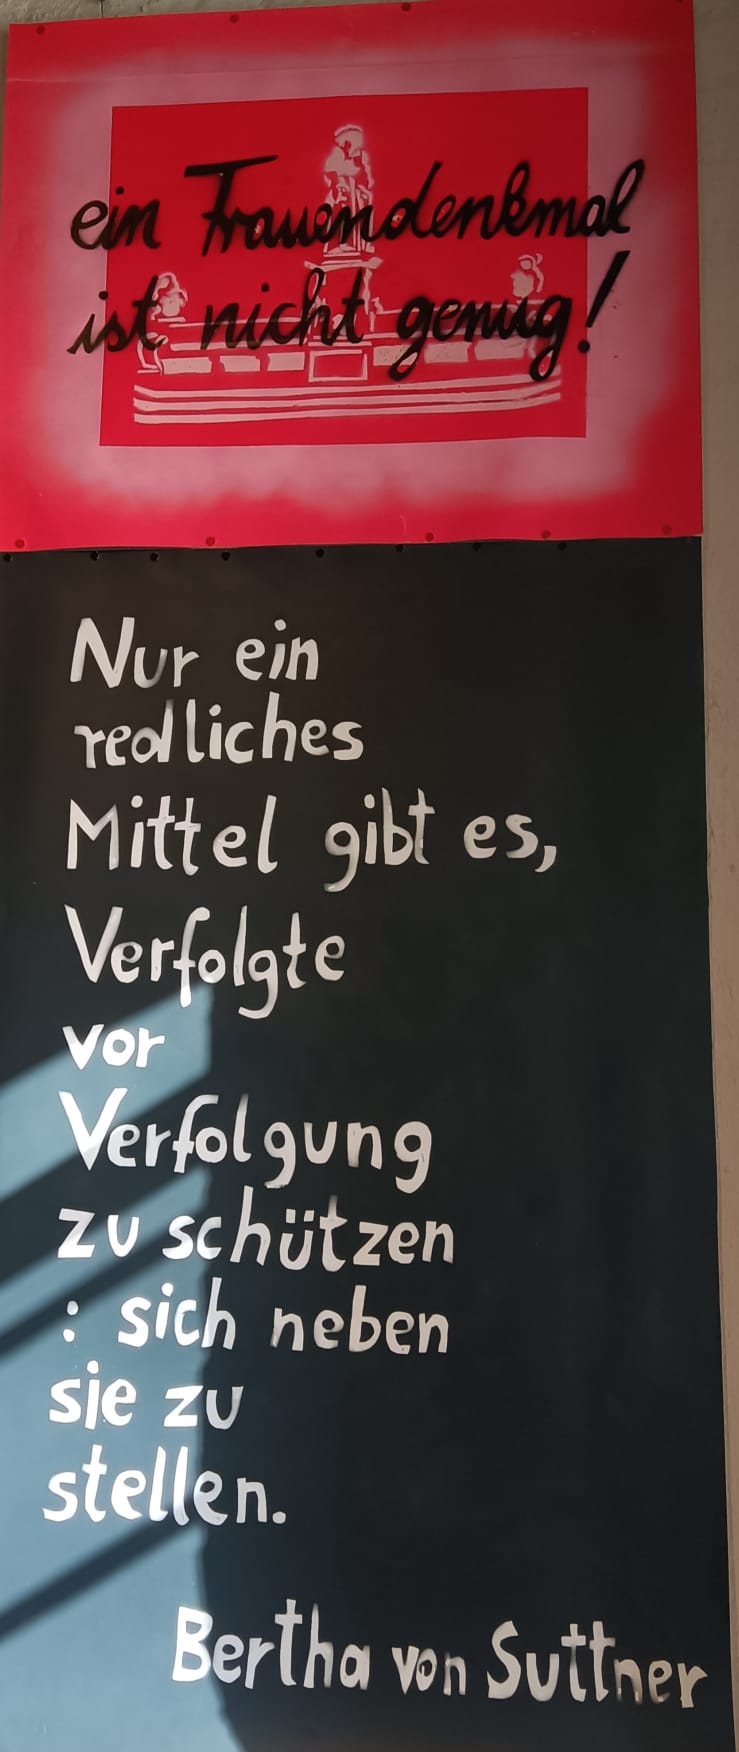 ein Frauendenkmal
ist nicht genug!
Nur ein
redliches
Mittel gibt es,
Verfolgte
vor
Verfolgung
zu schützen
: sich neben
sie zu
stellen.
Bertha von Suttner